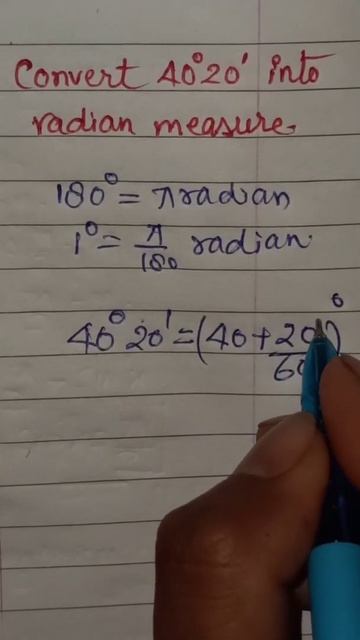 Convert 40°20' into
radian measure.
180° = π radian
1° = π/180 radian.
40° 20' = (40 + 20/60)°